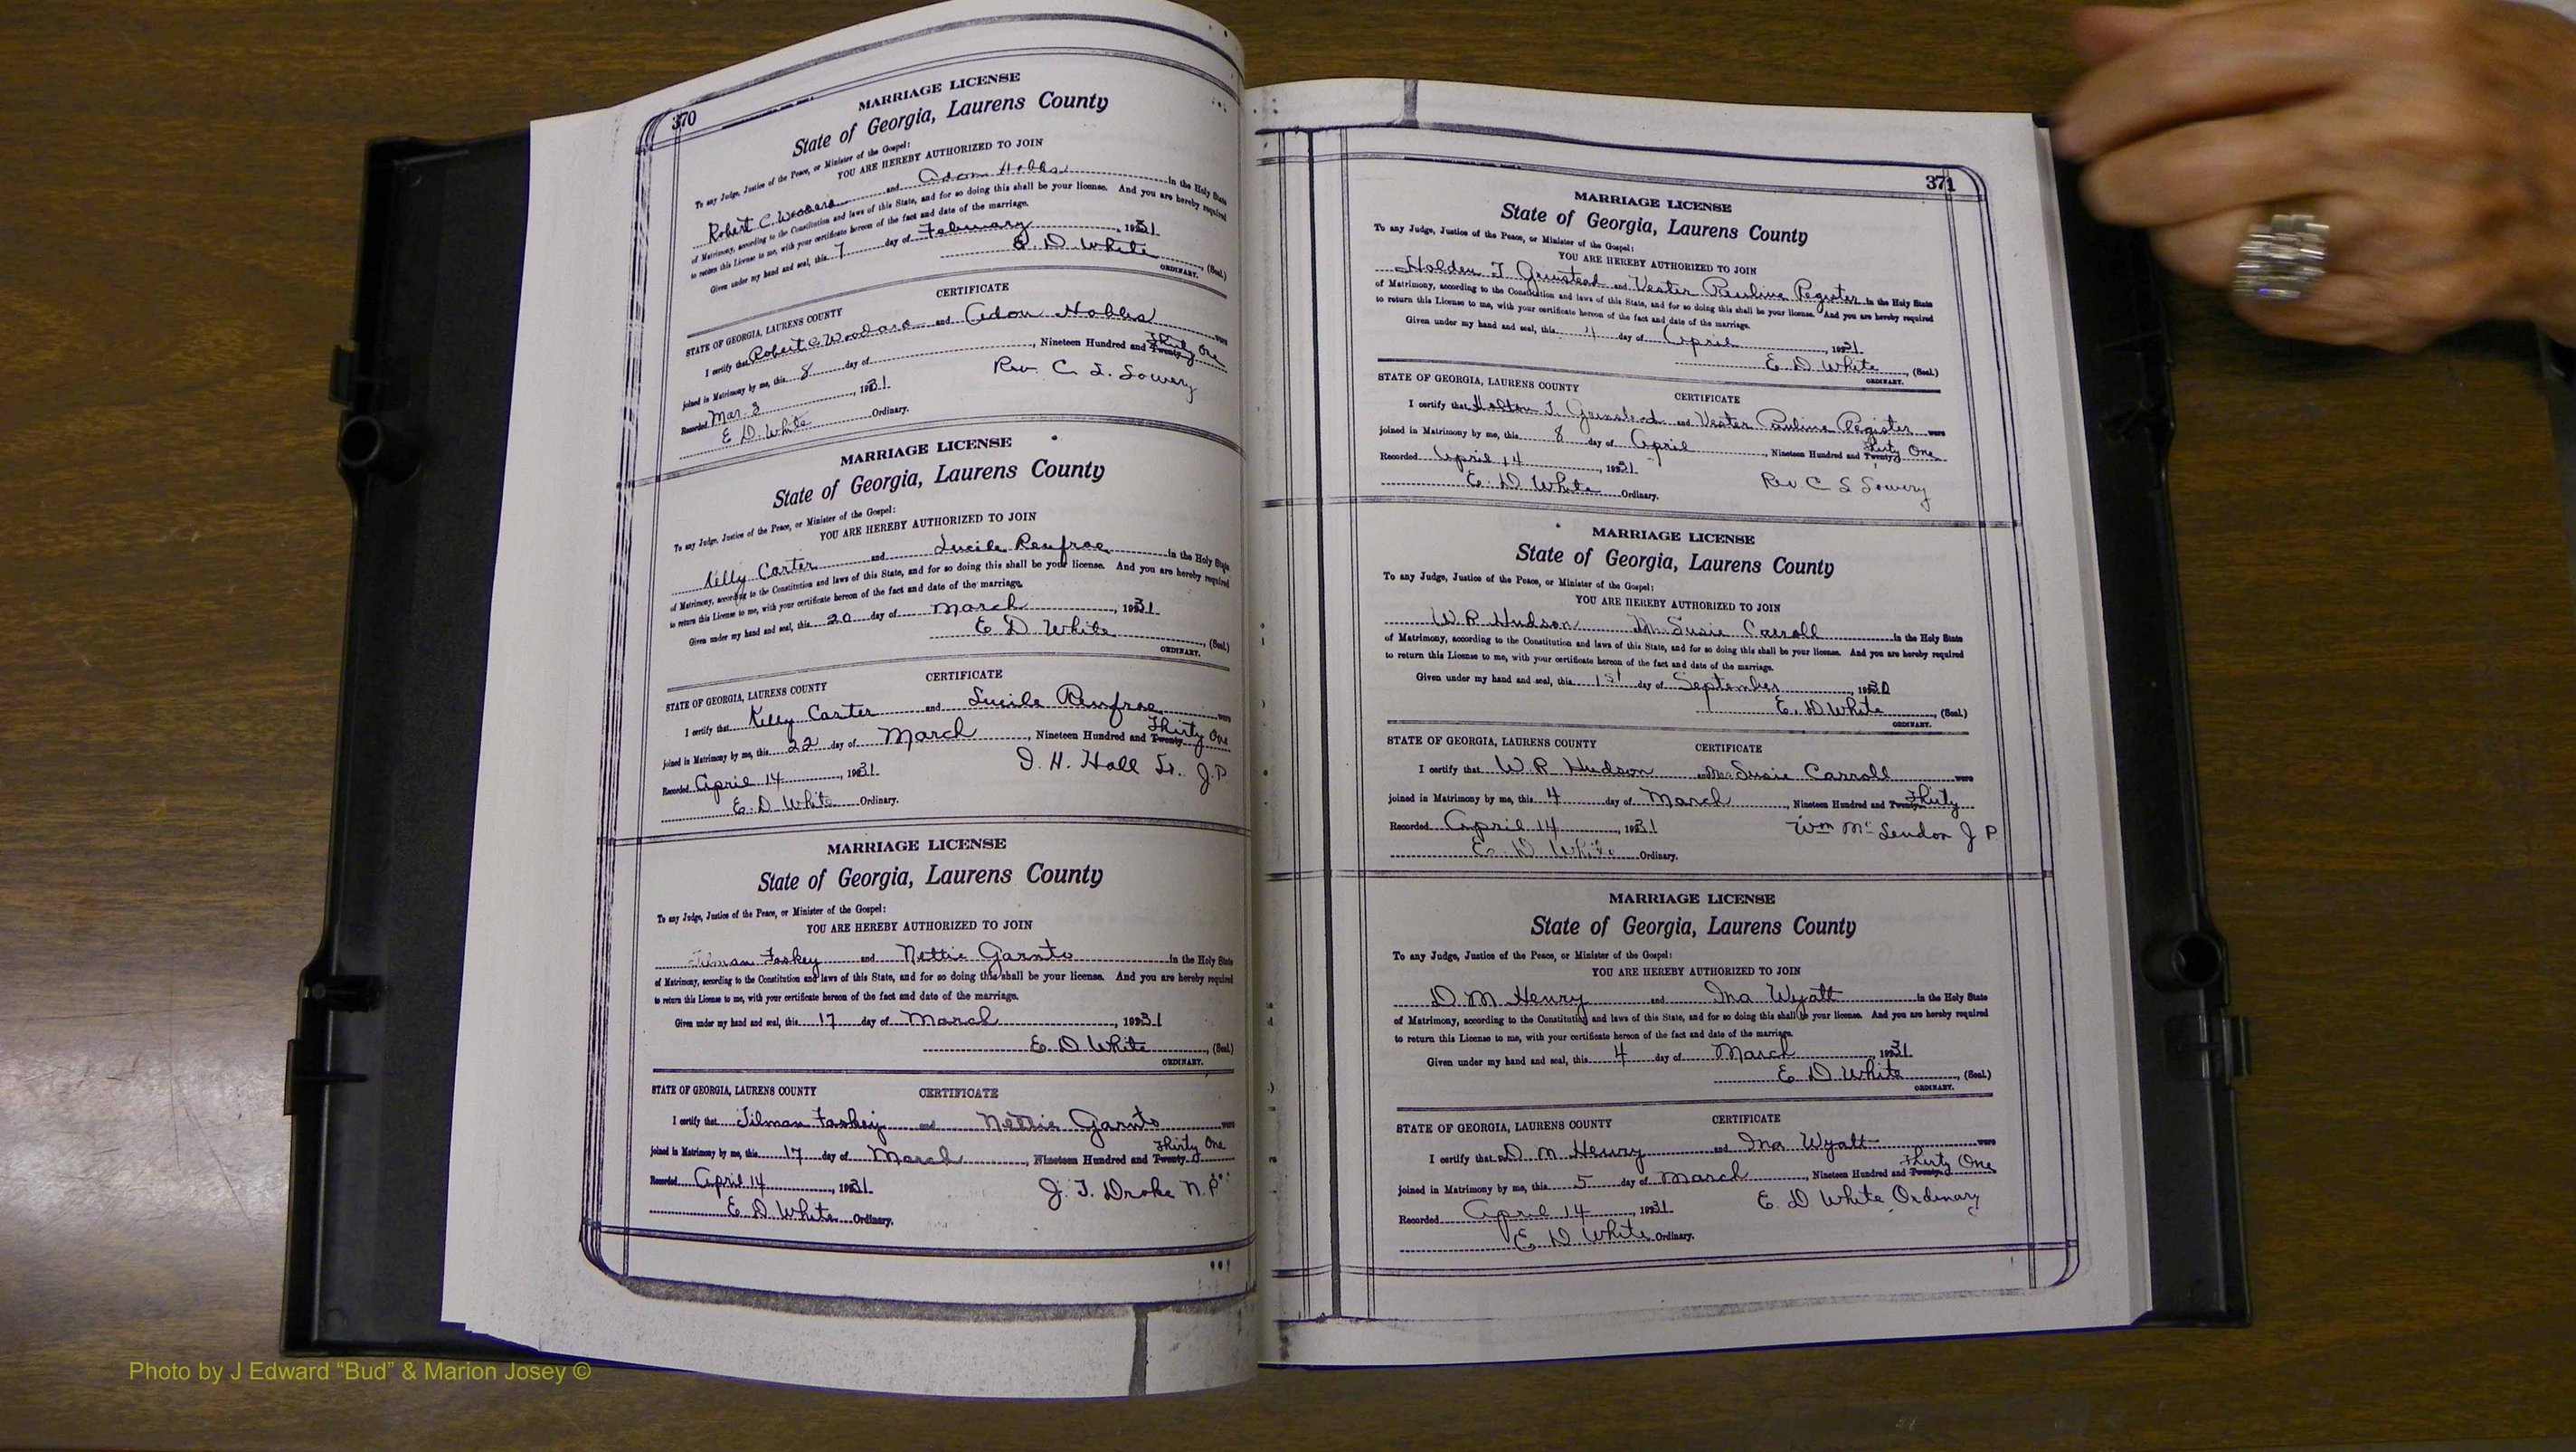 370
MARRIAGE LICENSE
State of Georgia, Laurens County
To any Judge, Justice of the Peace, or Minister of the Gospel:
YOU ARE HEREBY AUTHORIZED TO JOIN
Robert C. Woodard and Adom Hobbs in the Holy State
of Matrimony, according to the Constitution and laws of this State, and for so doing this shall be your license. And you are hereby required
to return this License to me, with your certificate hereon of the fact and date of the marriage.
Given under my hand and seal, this 7 day of February, 1931
E. D. White, (Seal.)
ORDINARY.
CERTIFICATE
STATE OF GEORGIA, LAURENS COUNTY
I certify that Robert C Woodard and Hobbs were
joined in Matrimony by me, this 8 day of, Nineteen Hundred and Twenty Thirty One
Recorded Mar. 8, 1931
Rev. C. S. Sowery
E. D. White Ordinary.
MARRIAGE LICENSE
State of Georgia, Laurens County
To any Judge, Justice of the Peace, or Minister of the Gospel:
YOU ARE HEREBY AUTHORIZED TO JOIN
Kelly Carter and Lucile Renfroe in the Holy State
of Matrimony, according to the Constitution and laws of this State, and for so doing this shall be your license. And you are hereby required
to return this License to me, with your certificate hereon of the fact and date of the marriage.
Given under my hand and seal, this 20 day of March, 1931
E D White, (Seal.)
ORDINARY.
CERTIFICATE
STATE OF GEORGIA, LAURENS COUNTY
I certify that Kelly Carter and Lucile Renfroe were
joined in Matrimony by me, this 22 day of March, Nineteen Hundred and Twenty Thirty One
Recorded April 14, 1931
J. H. Hall Sr. J.P
E. D White Ordinary.
MARRIAGE LICENSE
State of Georgia, Laurens County
To any Judge, Justice of the Peace, or Minister of the Gospel:
YOU ARE HEREBY AUTHORIZED TO JOIN
Tilman Faskey and Nettie Garnto in the Holy State
of Matrimony, according to the Constitution and laws of this State, and for so doing this shall be your license. And you are hereby required
to return this License to me, with your certificate hereon of the fact and date of the marriage.
Given under my hand and seal, this 17 day of March, 1931
E. D White, (Seal)
ORDINARY.
STATE OF GEORGIA, LAURENS COUNTY CERTIFICATE
I certify that Tilman Faskey and Nettie Garnto were
joined in Matrimony by me, this 17 day of March, Nineteen Hundred and Twenty Thirty One
Recorded April 14, 1931
J. T. Drake N.P.
E. D. White Ordinary.
371
MARRIAGE LICENSE
State of Georgia, Laurens County
To any Judge, Justice of the Peace, or Minister of the Gospel:
YOU ARE HEREBY AUTHORIZED TO JOIN
Holden T Grinstead and Vester Pauline Register in the Holy State
of Matrimony, according to the Constitution and laws of this State, and for so doing this shall be your license. And you are hereby required
to return this License to me, with your certificate hereon of the fact and date of the marriage.
Given under my hand and seal, this 4 day of April, 1931
E. D White, (Seal.)
ORDINARY.
STATE OF GEORGIA, LAURENS COUNTY
CERTIFICATE
I certify that T. Grinstead and Vester Pauline Register were
joined in Matrimony by me, this 8 day of April, Nineteen Hundred and Twenty Thirty One
Recorded April 14, 1931
E. D White Ordinary.
Rev. C S Sowery
MARRIAGE LICENSE
State of Georgia, Laurens County
To any Judge, Justice of the Peace, or Minister of the Gospel:
YOU ARE HEREBY AUTHORIZED TO JOIN
W R Hudson Mrs Susie Carroll in the Holy State
of Matrimony, according to the Constitution and laws of this State, and for so doing this shall be your license. And you are hereby required
to return this License to me, with your certificate hereon of the fact and date of the marriage.
Given under my hand and seal, this 1st day of September, 1930
E. D White, (Seal.)
ORDINARY.
STATE OF GEORGIA, LAURENS COUNTY CERTIFICATE
I certify that W. R Hudson and Mrs Susie Carroll were
joined in Matrimony by me, this 4 day of March, Nineteen Hundred and Twenty Thirty
Recorded April 14, 1931
Wm McLendon J P
E. D White Ordinary.
MARRIAGE LICENSE
State of Georgia, Laurens County
To any Judge, Justice of the Peace, or Minister of the Gospel:
YOU ARE HEREBY AUTHORIZED TO JOIN
D M Henry and Ina Wyatt in the Holy State
of Matrimony, according to the Constitution and laws of this State, and for so doing this shall be your license. And you are hereby required
to return this License to me, with your certificate hereon of the fact and date of the marriage.
Given under my hand and seal, this 4 day of March, 1931
E. D White, (Seal.)
ORDINARY.
STATE OF GEORGIA, LAURENS COUNTY CERTIFICATE
I certify that D M Henry and Ina Wyatt were
joined in Matrimony by me, this 5 day of March, Nineteen Hundred and Twenty Thirty One
Recorded April 14, 1931
E. D White Ordinary
E. D White Ordinary.
Photo by J Edward “Bud” & Marion Josey ©